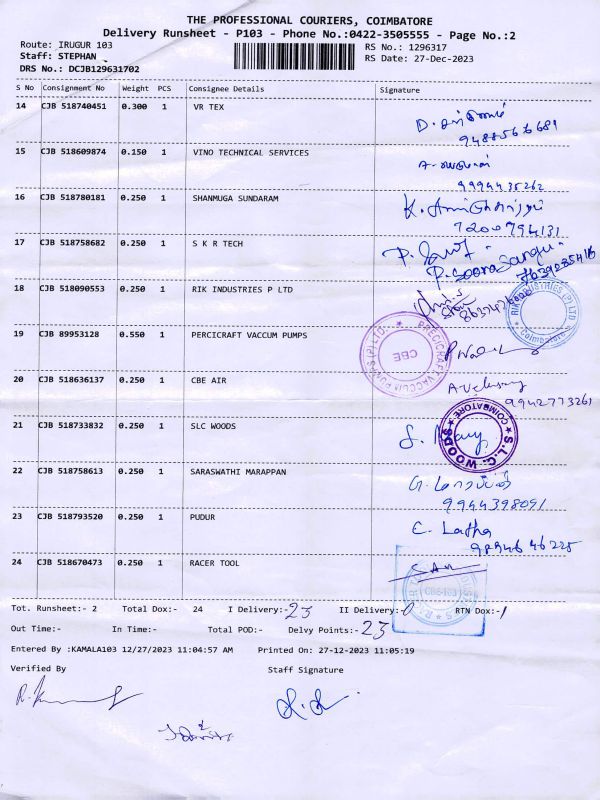 THE PROFESSIONAL COURIERS, COIMBATORE
Delivery Runsheet - P103 - Phone No.:0422-3505555 - Page No.:2
Route: IRUGUR 103 RS No.: 1296317
Staff: STEPHAN RS Date: 27-Dec-2023
DRS No.: DCJB129631702
S No Consignment No Weight PCS Consignee Details Signature
14 CJB 518740451 0.300 1 VR TEX
9488566681
15 CJB 518609874 0.150 1 VINO TECHNICAL SERVICES
9994435262
16 CJB 518780181 0.250 1 SHANMUGA SUNDARAM
7200794131
17 CJB 518758682 0.250 1 S K R TECH
18 CJB 518090553 0.250 1 RIK INDUSTRIES P LTD
RIK INDUSTRIES (P) LTD Coimbatore
19 CJB 89953128 0.550 1 PERCICRAFT VACCUM PUMPS
PRECICRAFT VACCUM PUMPS (P) LTD. CBE
20 CJB 518636137 0.250 1 CBE AIR
9942773261
21 CJB 518733832 0.250 1 SLC WOODS
S.L.C. WOODS COIMBATORE
22 CJB 518758613 0.250 1 SARASWATHI MARAPPAN
9944398091
23 CJB 518793520 0.250 1 PUDUR
C. Latha
98946 46225
24 CJB 518670473 0.250 1 RACER TOOL
CBE-103
Tot. Runsheet:- 2 Total Dox:- 24 I Delivery:- 23 II Delivery:- 0 RTN Dox:- 1
Out Time:- In Time:- Total POD:- Delvy Points:- 23
Entered By :KAMALA103 12/27/2023 11:04:57 AM Printed On: 27-12-2023 11:05:19
Verified By Staff Signature